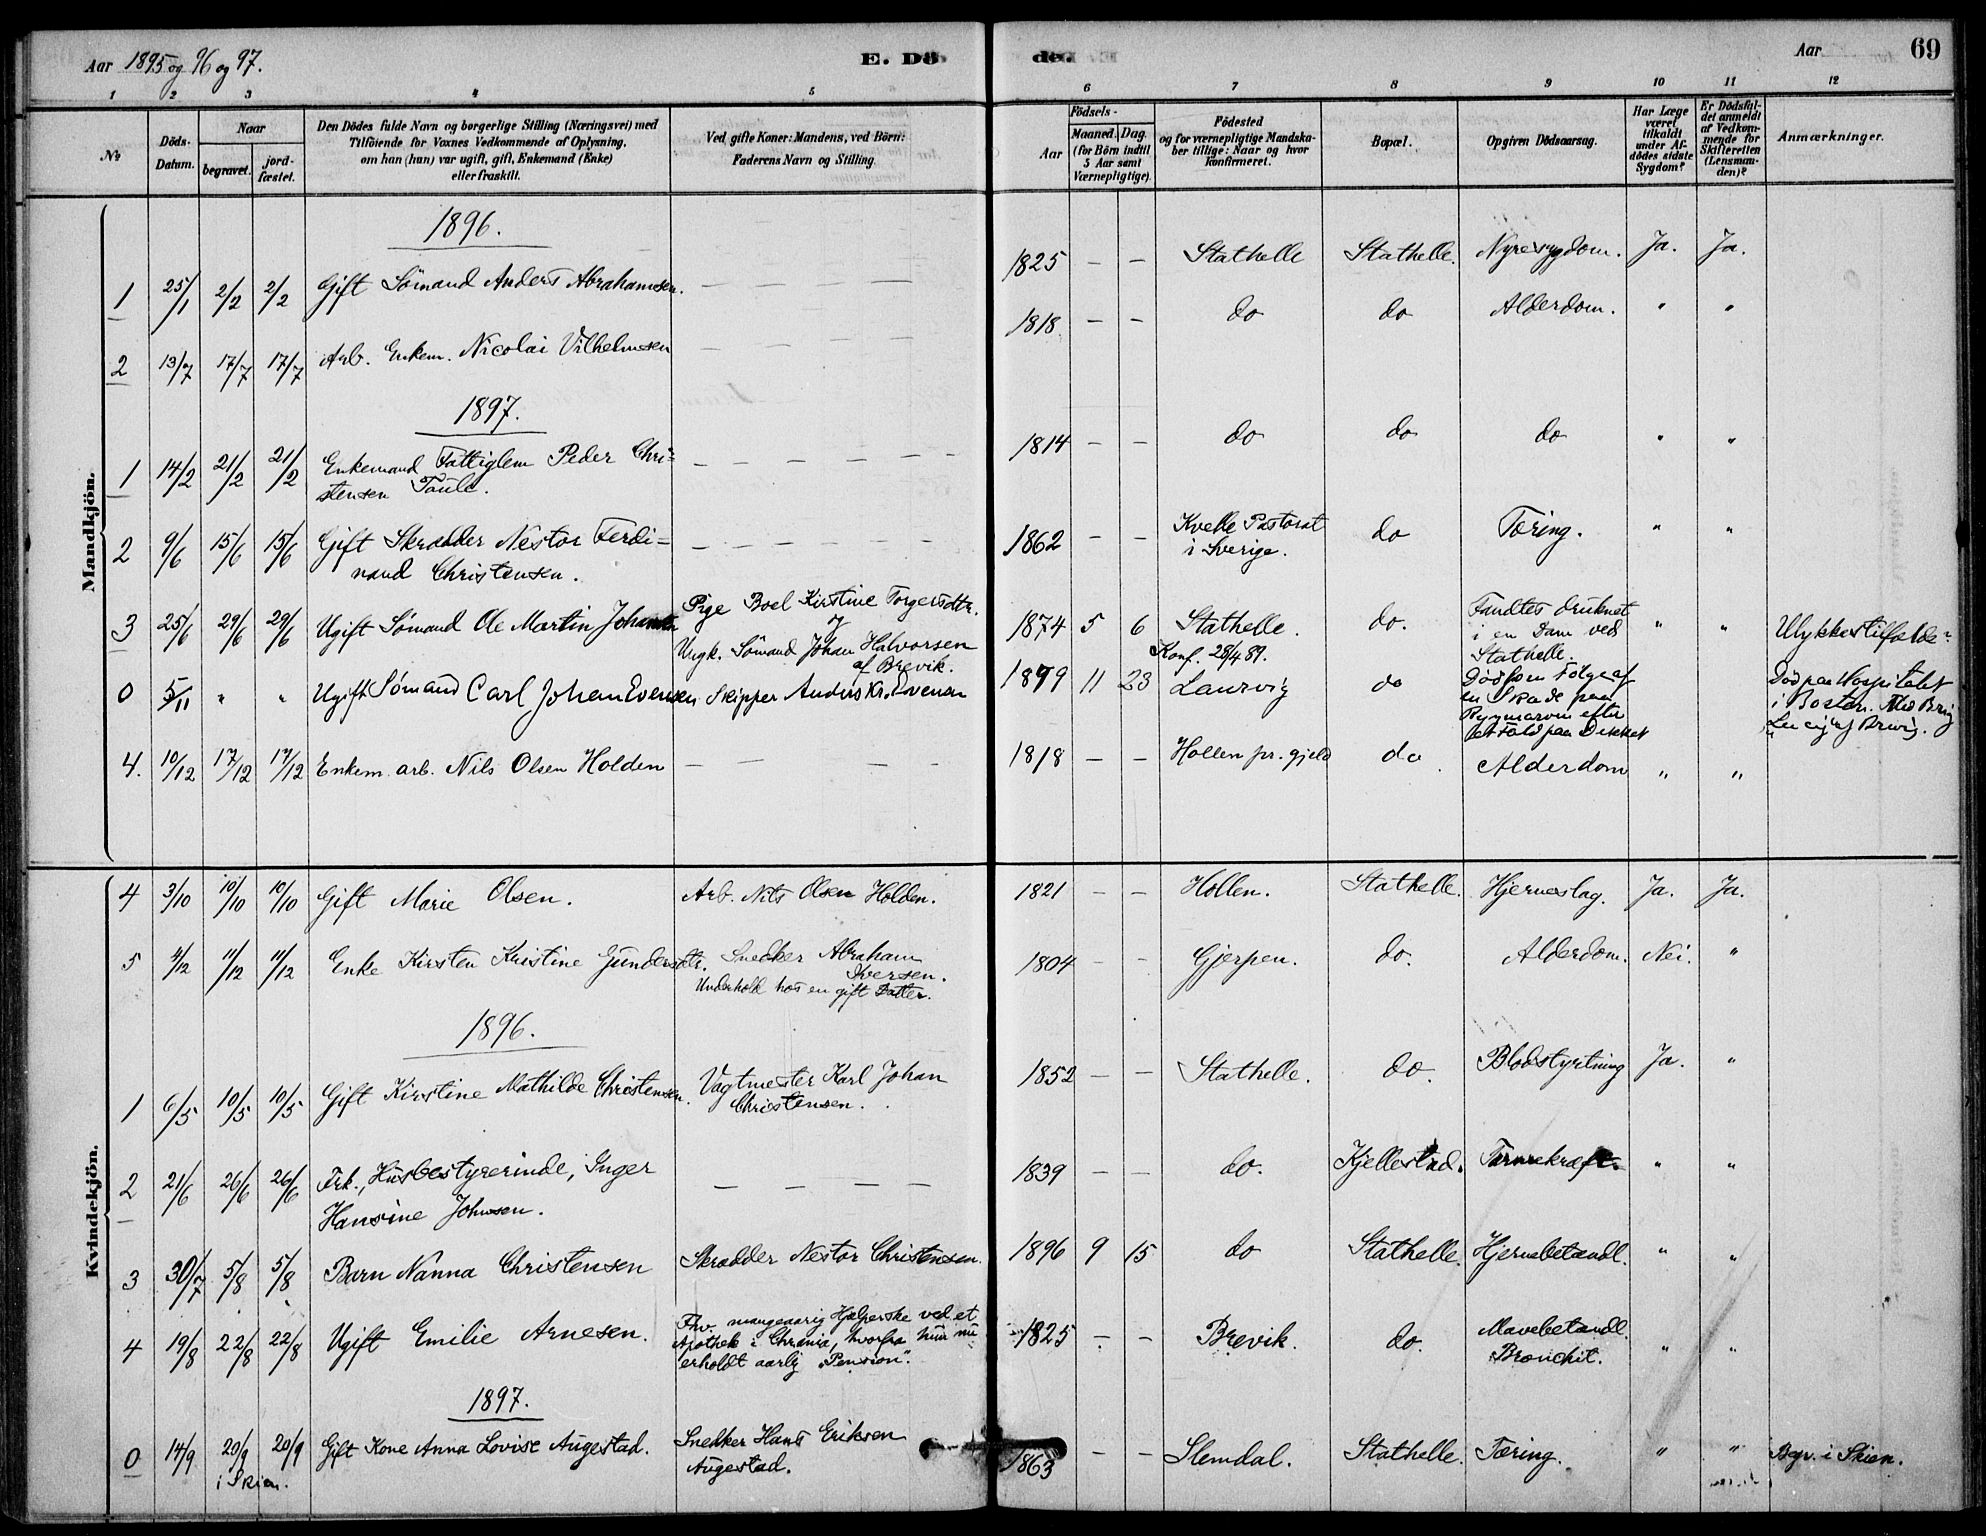 Aar 1895 og 96 og 97. E. Dö- de. Aar 69
1 2 3 4 5 6 7 8 9 10 11 12
No
Döds-Datum.
Naar
begravet.
jord-fæstet.
Den Dödes fulde Navn og borgerlige Stilling (Næringsvei) med
Tilföiende for Voxnes Vedkommende af Oplysning,
om han (hun) var ugift, gift, Enkemand (Enke)
eller fraskilt.
Ved gifte Koner: Mandens, ved Börn:
Faderens Navn og Stilling.
Födsels-
Aar
Maaned. Dag.
(for Börn indtil
5 Aar samt
Værnepligtige).
Födested
og for værnepligtige Mandska-
ber tillige: Naar og hvor
konfirmeret.
Bopæl.
Opgiven Dödsaarsag.
Har Læge
været
tilkaldt
under Af-
dödes sidste
Sygdom?
Er Dödsfal-
det anmeldt
af Vedkom-
mende for
Skifteretten
(Lensman-
den)?
Anmærkninger.
Mandkjön.
1896.
1 25/1 2/2 2/2 Gift Sømand Anders Abrahamsen. — — — — 1825 — — Stathelle Stathelle. Nyresygdom. Ja. Ja.
2 13/7 17/7 17/7 Arb. Enkem. Nicolai Vilhelmsen — — — — 1818 — — do do Alderdom. " "
1897.
1 14/2 21/2 21/2 Enkemand Fattiglem Peder Chri=
stensen Taule. — — — — 1814 — — do do do " "
2 9/6 15/6 15/6 Gift Skrædder Nestor Ferdi=
nand Christensen. — — — — 1862 — — Kvelle Pastorat
i Sverige. do Tæring. " "
3 25/6 29/6 29/6 Ugift Sømand Ole Martin Johansen Pige Boel Kirstine Torgersdtr.
og
Ungk. Sømand Johan Halvorsen
af Brevik. 1874 5 6 Stathelle.
Konf. 28/4 89. do. Fandtes druknet
i en Dam ved
Stathelle. " " Ulykkestilfælde
0 5/11 " " Ugift Sømand Carl Johan Evensen Skipper Anders Kr. Evensen 1879 11 23 Laurvig do Død som Følge af
en Skade paa
Rygmarven efter
et Fald paa Dækket Død paa Hospitalet
i Boston. Med Brig
af Brevig.
4. 10/12 17/12 17/12 Enkem. arb. Nils Olsen Holden — — — — 1818 — — Hollen pr. gjeld do Alderdom " "
Kvindekjön.
4 3/10 10/10 10/10 Gift Marie Olsen. Arb. Nils Olsen Holden. 1821 — — Hollen. Stathelle. Hjerneslag. Ja. Ja.
5 4/12 11/12 11/12 Enke Kirsten Kristine Gundersdtr. Snedker Abraham
Iversen.
Underhold hos en gift Datter. 1804 — — Gjerpen. do. Alderdom. Nei. "
1896.
1 6/5 10/5 10/5 Gift Kirstine Mathilde Christensen. Vagtmester Karl Johan
Christensen. 1852 — — Stathelle. do. Blodstyrtning Ja. "
2 21/6 26/6 26/6 Frk., Husbestyrerinde, Inger
Hansine Johnsen. — — — — 1839 — — do. Kjellestad. Tarmekræft. " "
3 30/7 5/8 5/8 Barn Nanna Christensen Skrædder Nestor Christensen. 1896 9 15 do Stathelle. Hjernebetændl. " "
4 19/8 22/8 22/8 Ugift Emilie Arnesen. Fhv. mangeaarig Hjælperske ved et
Apothek i Chrania, hvorfra hun nu
erholdt aarlig "Pension". 1825 — — Brevik. do. Mavebetændl.
Bronchit. " "
1897.
0 14/9 20/9 20/9 Gift Kone Anna Lovise Augestad. Snedker Hans Eriksen
Augestad. 1863 — — Slemdal. Stathelle. Tæring. " " Begr. i Skien.
i Skien.